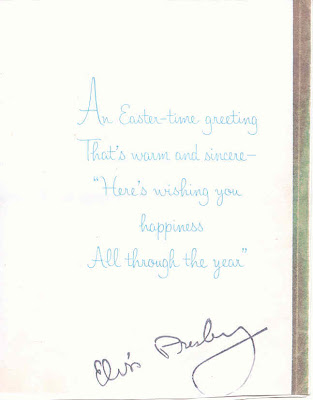 An Easter-time greeting
That's warm and sincere—
"Here's wishing you
happiness
All through the year"
Elvis Presley